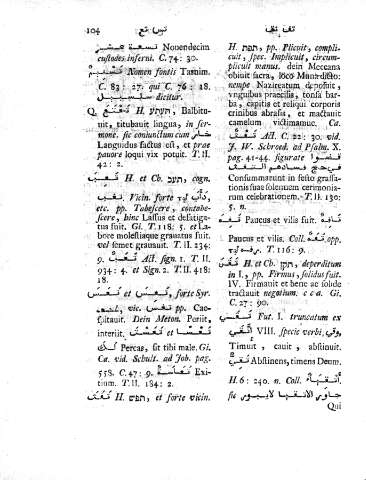 104 تيس تع تفث تقف
تسعة عشر Novendecim
custodes inferni. C. 74: 30.
تسنيم Nomen fontis Tasnim.
C. 83: 27. qui C. 76: 18.
سلسبيل dicitur.
Q. تعتع H. תעתע, Balbitu-
vit, titubavit lingua, in ser-
mone. sic conjunctum cum
خار Languidus factus est, et prae
pavore loqui vix potuit. T. II.
42: 2.
تعب H. et Ch. תעב, cogn.
تعب. Vicin. forte דאב
etc. pp. Tabescere, contabe-
scere, hinc Lassus et defatiga-
tus fuit. Gi. T. 118: 5. et La-
bore molestiaque gravatus fuit.
vel semet gravavit. T. II. 234:
9. تعب Act. sign. 1. T. II.
934: 4. et Sign. 2. T. II. 418:
18.
تعس et تعس, forte Syr.
vic. pp. Cae-
spitavit. Dein Meton. Periit,
interiit. تعسا et تعست
لك Pereas, sit tibi male. Gi.
Ca. vid. Schult. ad Job. pag.
558. C. 47: 9. تعاسة Exi-
tium. T. II. 184: 2.
تفث H. תפש, et forte vicin.
H. תפת pp. Plicuit, compli-
cuit, spec. Implicuit, circum-
plicuit manus. dein Meccana
obivit sacra, loco Munadicto:
nempe Naziraeatum deposuit,
unguibus praecisis, tonsa bar-
ba, capitis et reliqui corporis
crinibus abrasis, et mactavit
camelum victimamve. Ca.
تفث Act. C. 22: 30. vid.
J. W. Schroed. ad Psalm. X.
pag. 41-44. figurate قضوا
في حج فسادهم التفث
Consummarunt in festo grassa-
tionis suae solennem cerimonia-
rum celebrationem. T. II. 130:
5. n.
تفه Paucus et vilis fuit. تافه
Paucus et vilis. Coll. تفه app.
T. 116: 9.
تقن H. et Ch. תקן, deperditum
in I., pp. Firmus, solidus fuit.
IV. Firmavit et bene ac solide
tractavit negotium. c c a. Gi.
C. 27: 90.
تقي Fut. I. truncatum ex
اتقي VIII. speciei verbi وقي,
Timuit, cavit, abstinuit.
تقي Abstinens, timens Deum.
H. 6: 240. n. Coll. اتقياء.
sic جاور الاتقيا لا يبور
Qui